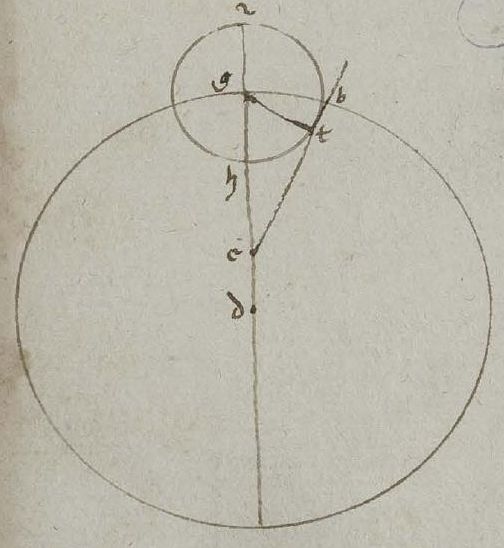 z
g
b
t
h
e
d